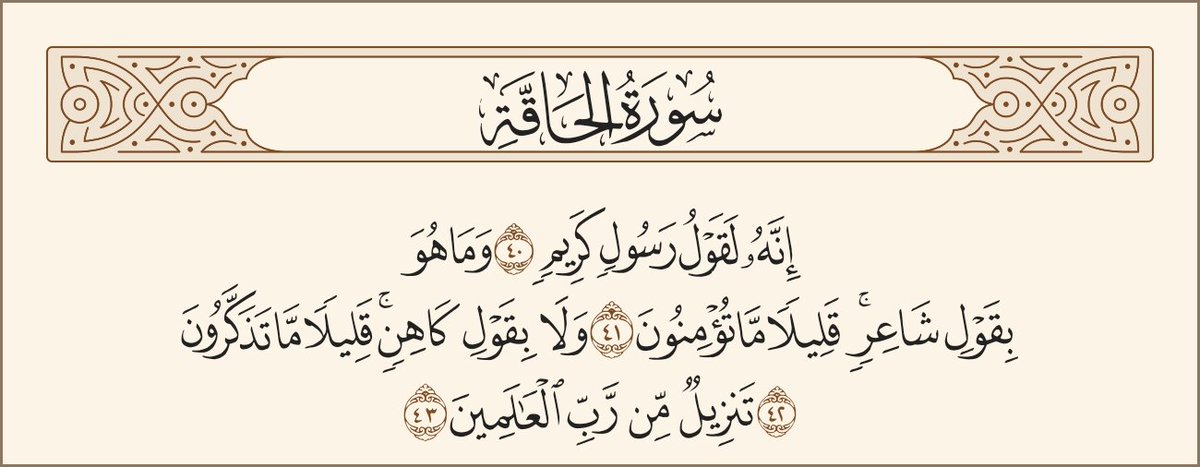 سُورَةُ الحَاقَّةِ
إِنَّهُۥ لَقَوۡلُ رَسُولٖ كَرِيمٖ ٤٠ وَمَا هُوَ
بِقَوۡلِ شَاعِرٖۚ قَلِيلٗا مَّا تُؤۡمِنُونَ ٤١ وَلَا بِقَوۡلِ كَاهِنٖۚ قَلِيلٗا مَّا تَذَكَّرُونَ
٤٢ تَنزِيلٞ مِّن رَّبِّ ٱلۡعَٰلَمِينَ ٤٣